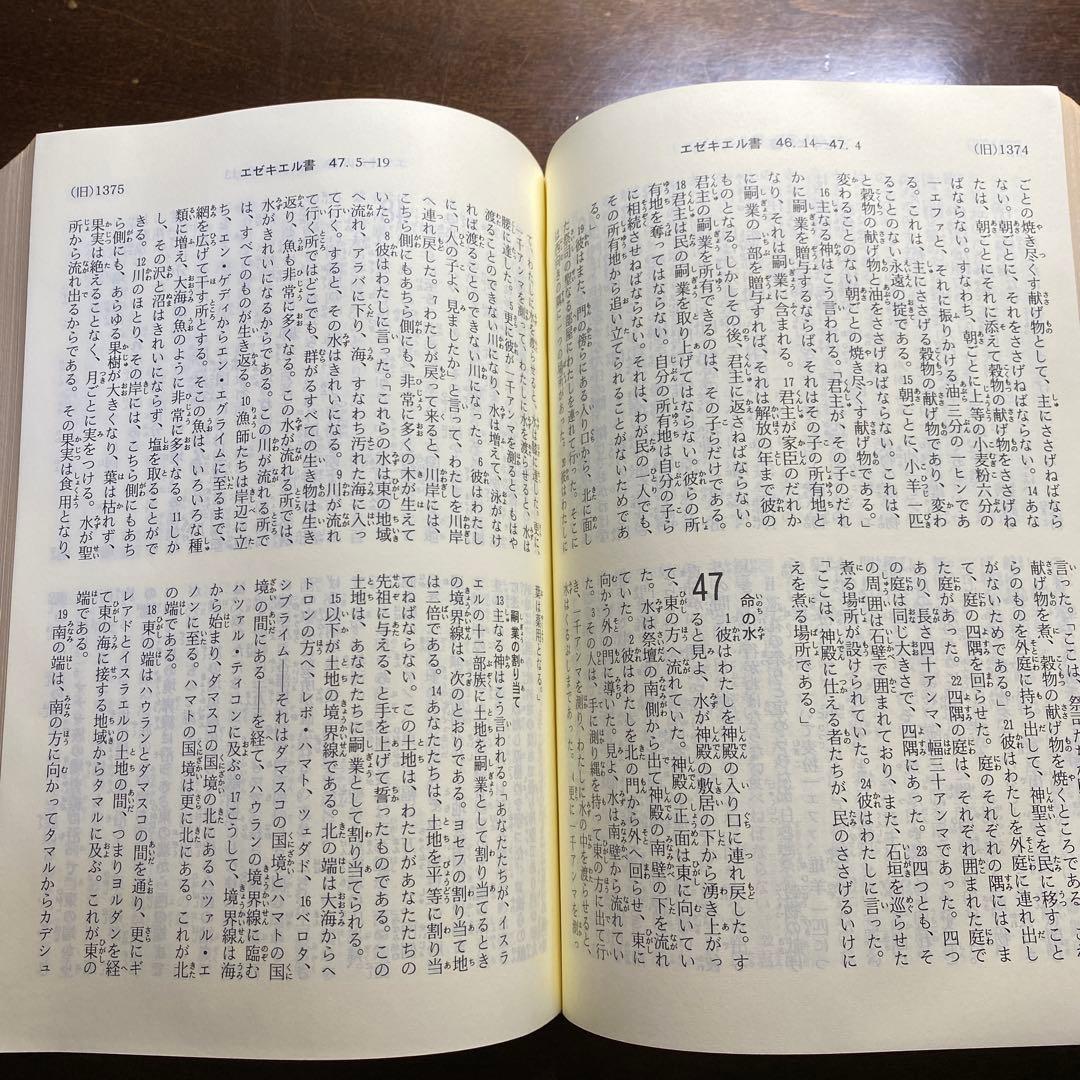 エゼキエル書 46.14―47.4
(旧)1374
ごとの焼き尽くす献げ物として、主にささげねばなら
ない。朝ごとに、それをささげねばならない。14あな
たは、朝ごとにそれに添えて穀物の献げ物をささげね
ばならない。すなわち、朝ごとに上等の小麦粉六分の
一エファと、それに振りかける油三分の一ヒンであ
る。これは、主にささげる穀物の献げ物であり、変わ
ることのない永遠の掟である。15朝ごとに、小羊一匹
と穀物の献げ物と油をささげねばならない。これは、
変わることのない朝ごとの焼き尽くす献げ物である。」
16主なる神はこう言われる。「君主が、その子のだれ
かに嗣業を贈与するならば、それはその子の所有地と
なり、それは嗣業に含まれる。17君主が家臣のだれかに
に嗣業の一部を贈与すれば、それは解放の年まで彼の
ものとなる。しかしその後、君主に返さねばならない。
君主の嗣業を所有できるのは、その子らだけである。
18君主は民の嗣業を取り上げてはならない。彼らの所
有地を奪ってはならない。自分の所有地は自分の子ら
に相続させねばならない。それは、わが民の一人でも、
その所有地から追い立てられることがないためであ
る。」
19彼はまた、門の傍らにある入り口から、北に面し
た祭司の聖なる部屋にわたしを連れて行った。
言った。「ここは、祭司
献げ物を煮、穀物の献げ物を焼くところであ
らのものを外庭に持ち出して、神聖さを民に移すこと
がないためである。」21彼はわたしを外庭に連れ出し
て、庭の四隅を回らせた。庭のそれぞれの隅には、ま
た庭があった。22四隅の庭は、それぞれ囲まれた庭で
あり、長さ四十アンマ、幅三十アンマであった。四つ
の庭は同じ大きさで、四隅にあった。23四つとも、そ
の周囲は石壁で囲まれており、また、石垣を巡らせた
煮る場所が設けられてあった。24彼はわたしに言った。
「ここは、神殿に仕える者たちが、民のささげるいけに
えを煮る場所である。」
命の水
47
1彼はわたしを神殿の入り口に連れ戻した。す
ると見よ、水が神殿の敷居の下から湧き上がっ
て、東の方へ流れていた。神殿の正面は東に向いてい
た。水は祭壇の南側から出て神殿の南壁の下を流れ
ていた。2彼はわたしを北の門から外へ回らせ、東に
向かう外の門に導いた。見よ、水は南壁から流れてい
た。3その人は、手に測り縄を持って東の方に出て行
き、一千アンマを測り、わたしに水の中を渡らせると、
水はくるぶしまであった。4更に一千アンマを測っ
エゼキエル書 47.5―19
(旧)1375
一千アンマを測って、わたしに水を渡らせると、水は
腰に達した。5更に彼が一千アンマを測ると、もはや
渡ることのできない川になり、水は増えて、泳がなけ
れば渡ることのできない川になった。6彼はわたし
に、「人の子よ、見ましたか」と言って、わたしを川岸
へ連れ戻した。7わたしが戻って来ると、川岸には、
こちら側にもあちら側にも、非常に多くの木が生えて
いた。8彼はわたしに言った。「これらの水は東の地域
へ流れ、アラバに下り、海、すなわち汚れた海に入っ
て行く。すると、その水はきれいになる。9川が流れ
て行く所ではどこでも、群がるすべての生き物は生き
返り、魚も非常に多くなる。この水が流れる所では、
水がきれいになるからである。この川が流れる所で
は、すべてのものが生き返る。10漁師たちは岸辺に立
ち、エン・ゲディからエン・エグライムに至るまで、
網を広げて干す所とする。この魚は、いろいろな種
類に増え、大海の魚のように非常に多くなる。11しか
し、その沢と沼はきれいにならず、塩を取ることがで
きる。12川のほとり、その岸には、こちら側にもあち
ら側にも、あらゆる果樹が大きくなり、葉は枯れず、
果実は絶えることなく、月ごとに実をつける。水が聖
所から流れ出るからである。その果実は食用となり、
葉は薬用となる。」
嗣業の割り当て
13主なる神はこう言われる。「あなたたちが、イスラ
エルの十二部族に土地を嗣業として割り当てるとき
の境界線は、次のとおりである。ヨセフの割り当て地
は二倍である。14あなたたちは、土地を平等に割り当
てねばならない。この土地は、わたしがあなたたちの
先祖に与える、と手を上げて誓ったものである。この
土地は、あなたたちに嗣業として割り当てられる。
15以下が土地の境界線である。北の端は大海からヘ
トロンの方へ、レボ・ハマト、ツェダド、16ベロタ、
シブライム――それはダマスコの国境とハマトの国
境の間にある――を経て、ハウランの境界線に臨む
ハツァル・ティコンに及ぶ。17こうして、境界線は海
から始まり、ダマスコの国境の北にあるハツァル・エ
ノンに至る。ハマトの国境は更に北にある。これが北
の端である。
18東の端はハウランとダマスコの間を通り、更にギ
レアドとイスラエルの土地の間、つまりヨルダンを経
て東の海に接する地域からタマルに及ぶ。これが東の
端である。
19南の端は、南の方に向かってタマルからカデシュ